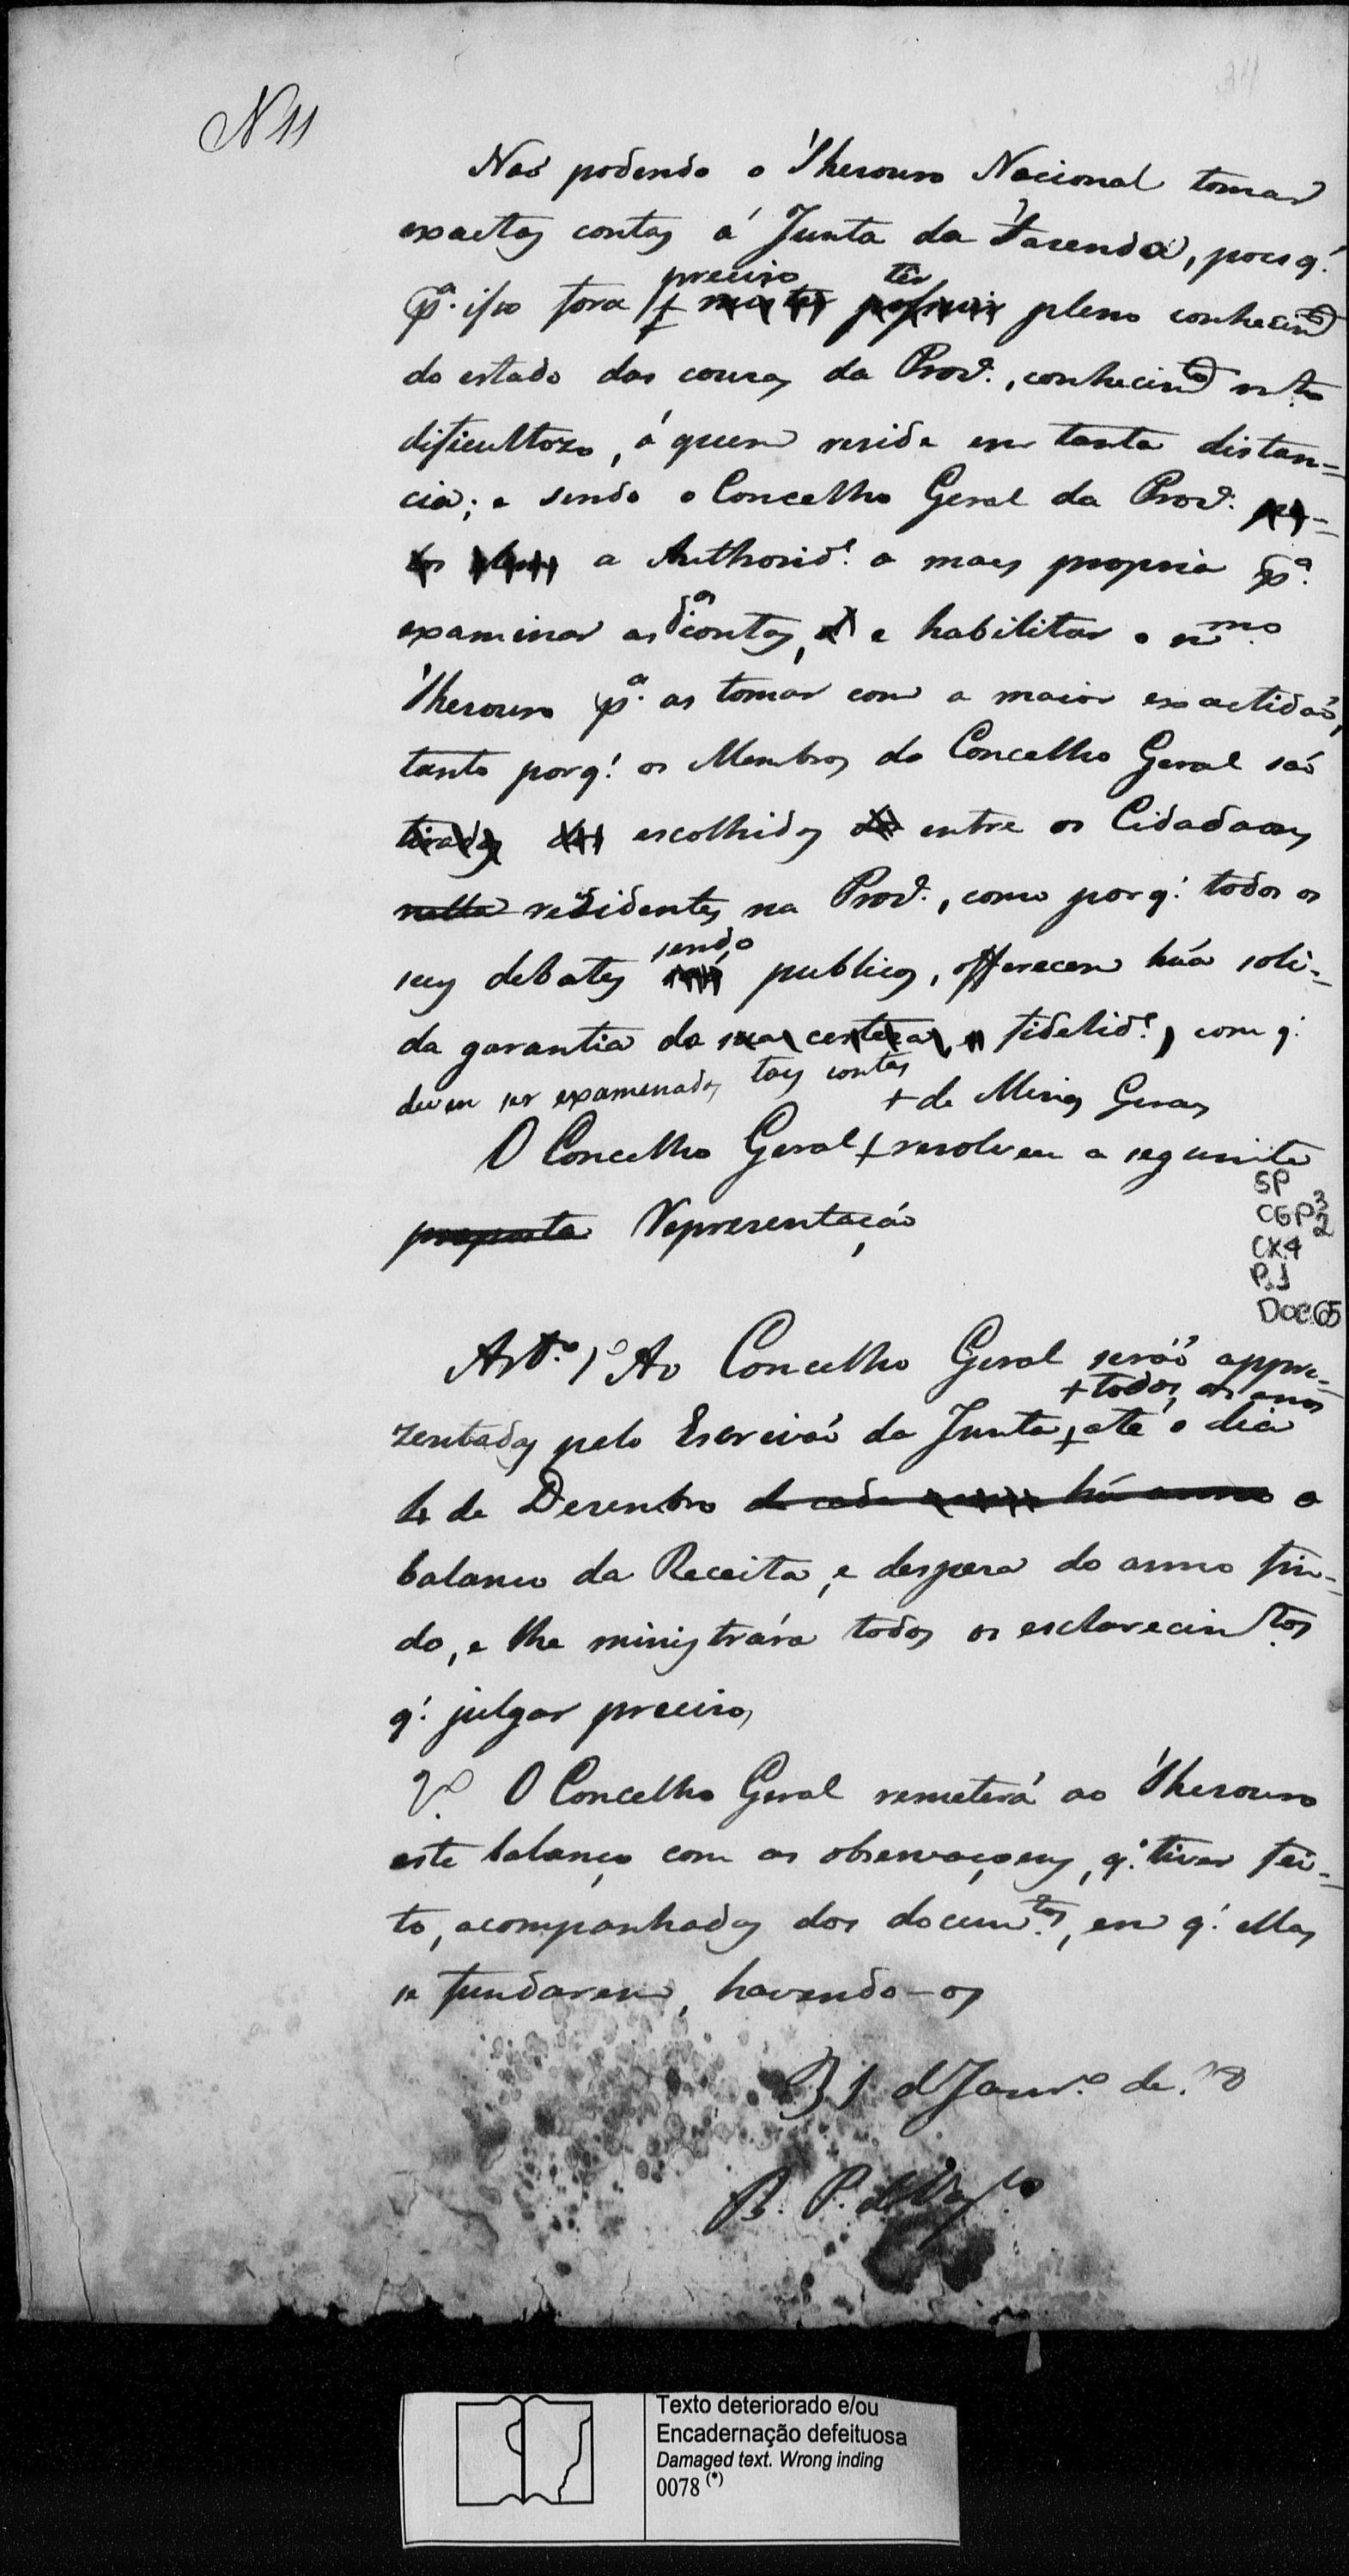 N 11
Naõ podendo o Thesouro Nacional tomar
exactas contas á Junta da Fazenda, pois q.'
preciso ter
p.ª isso fora pleno conhecim.to
do estado das cousas da Prov.ª, conhecim.to m.to
dificultozo, á quem reside em tanta distan=
cia; e sendo o Concelho Geral da Prov.ª
a Authorid.e a mais propria p.ª
examinar as d.as contas, e habilitar o m.mo
Thesouro p.ª as tomar com a maior exactidaõ,
tanto porq.' os Membros do Concelho Geral saõ
tirados escolhidos entre os Cidadaons
nella residentes na Prov.ª, como porq.' todos os
sendo
seus debates publicos, offerecem húa soli=
da garantia da sua certeza, e fidelid.e, com q.'
devem ser examinadas tais contas
+ de Minas Geraes
O Concelho Geral + resolveu a seguinte
proposta Representaçaõ
SP
CGP3
2
CX4
P.1
DOC.65
Art.º 1º Ao Concelho Geral seráõ appre=
+ todos os anos
zentados pelo Escrivaõ da Junta, + até o dia
de Dezembro de cada hú anno o
balanço da Receita, e despeza do anno fin=
do, e lhe ministrára todos os esclarecim.tos
q.' julgar precisos
2º. O Concelho Geral remeterá ao Thesouro
este balanço com as observaçoens, q.' tiver fei=
to, acompanhadas dos docum.tos, em q.' ellas
se fundarem, havendo-os
31 d'Janr.º de
B. P. de Vas.los
Texto deteriorado e/ou
Encadernação defeituosa
Damaged text. Wrong inding
0078 (*)